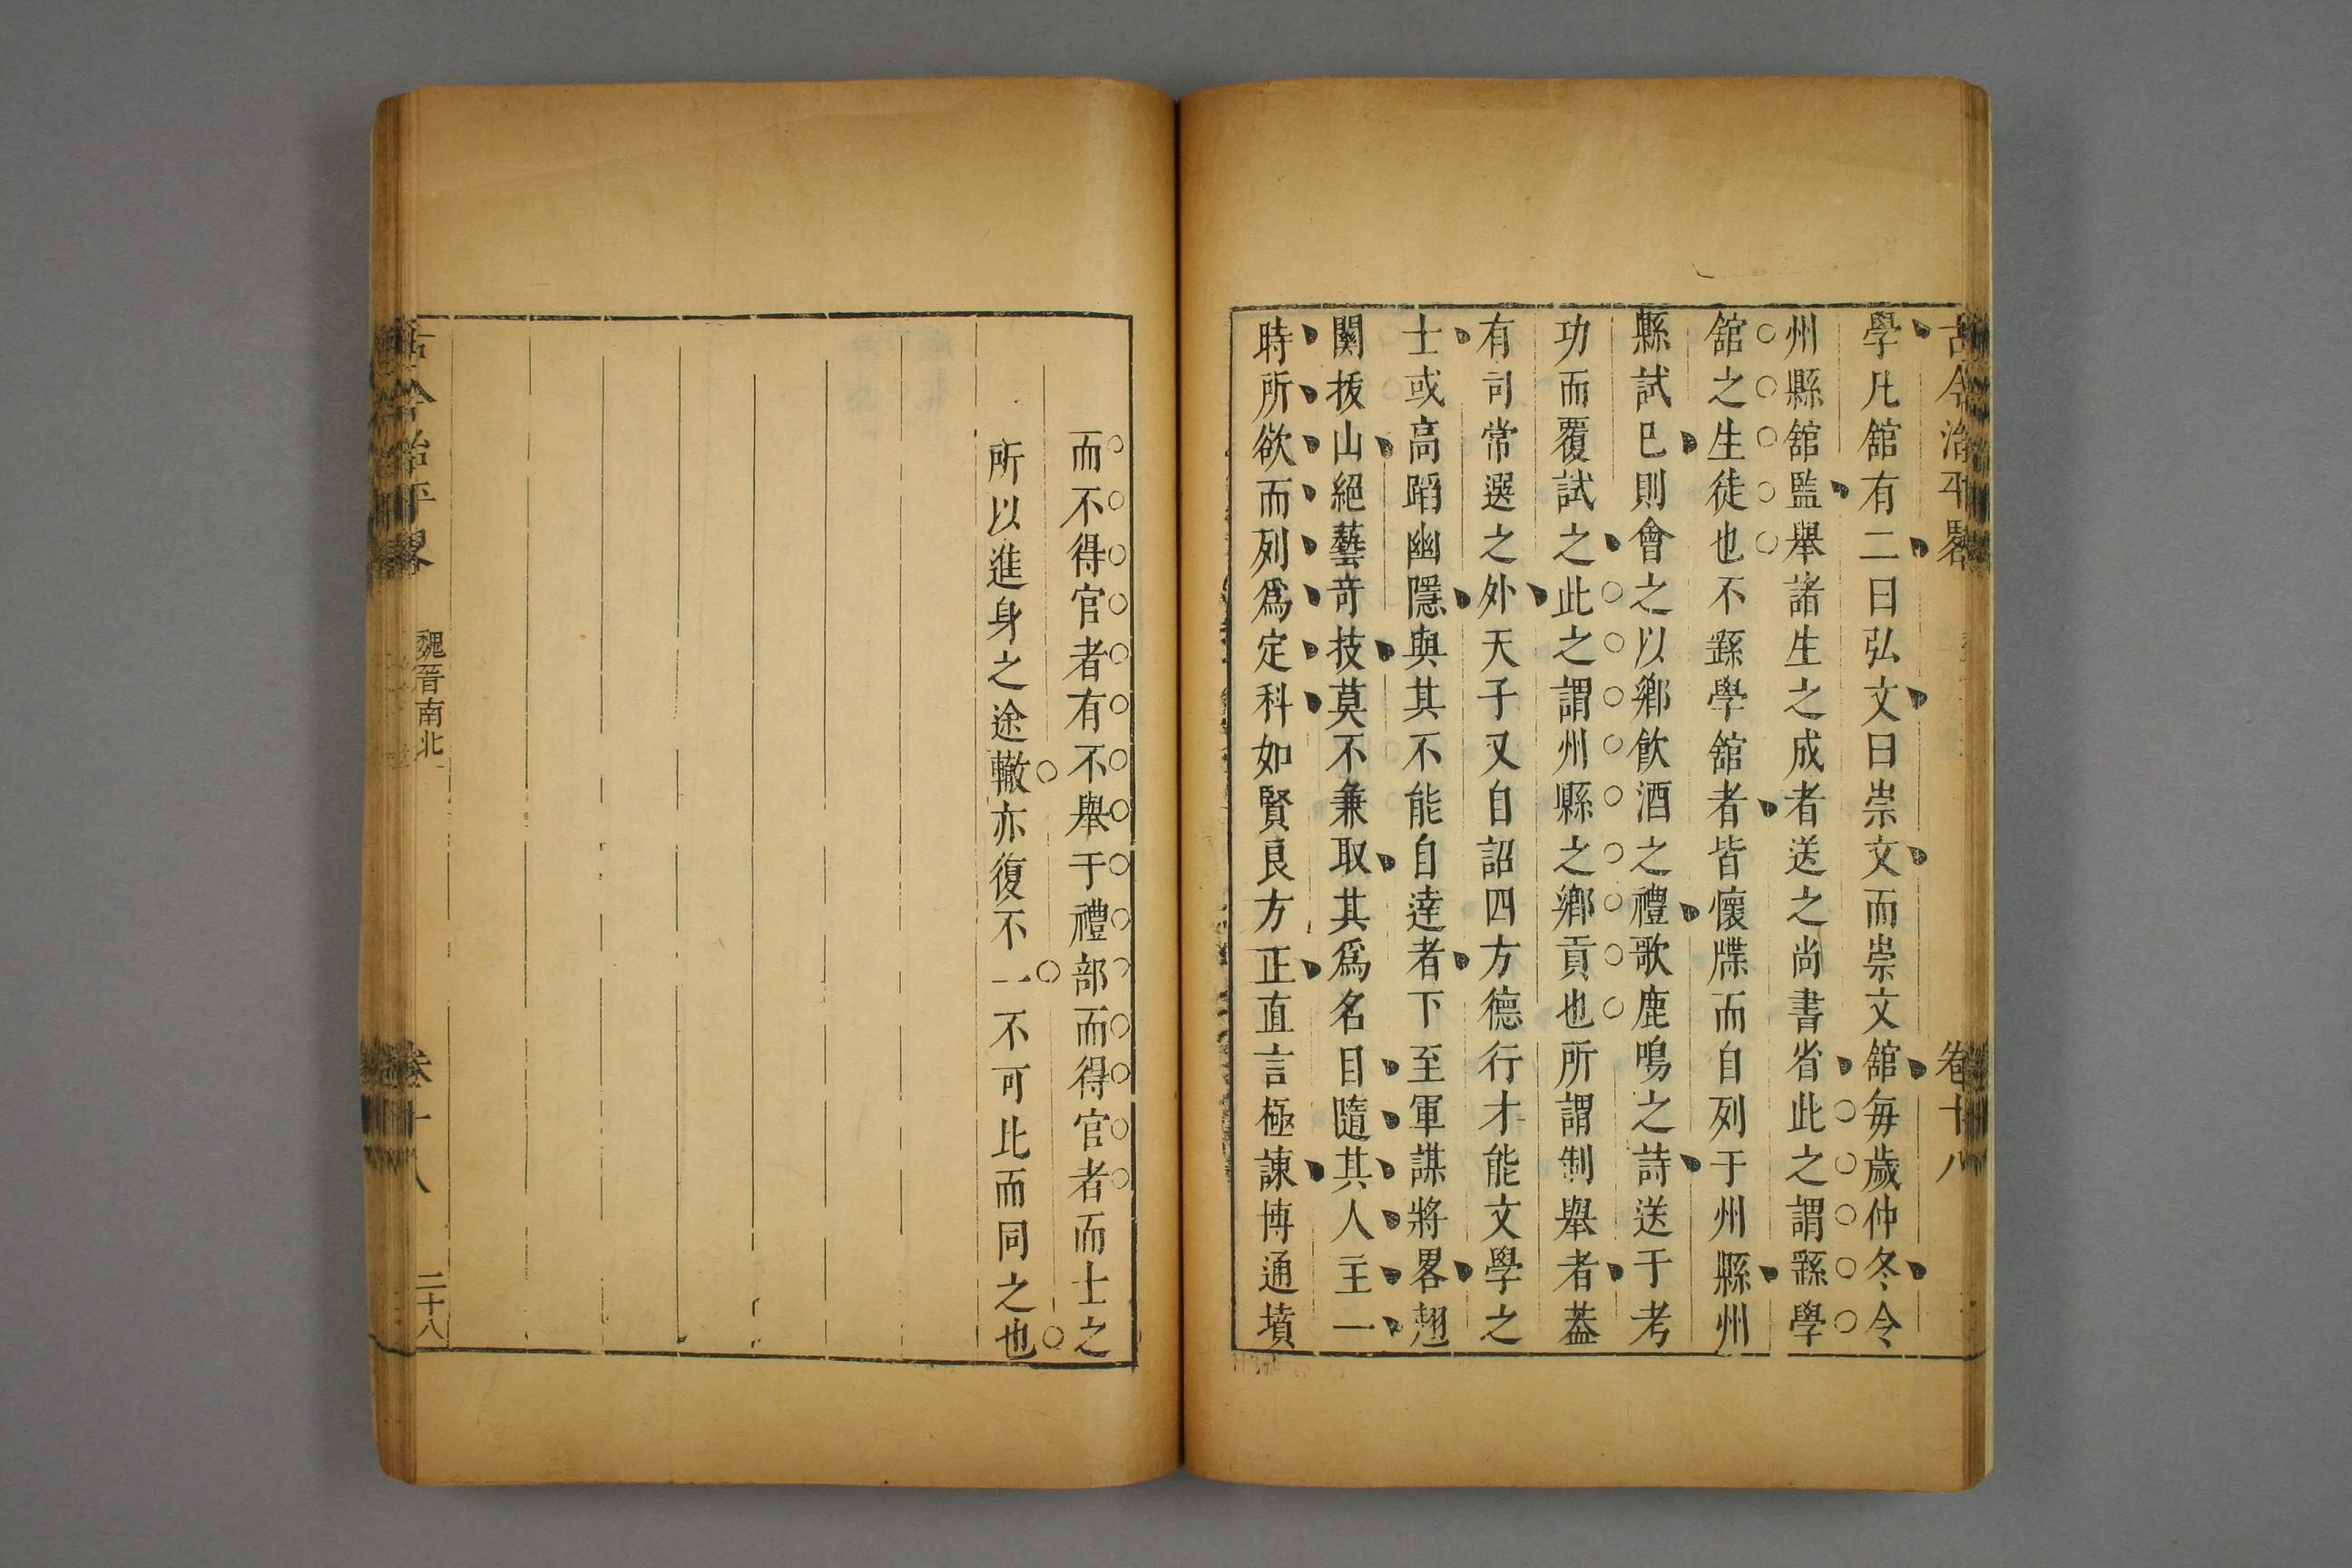 古今治平畧 卷十八
學凡舘有二曰弘文曰崇文而崇文舘每歲仲冬令
州縣舘監舉諸生之成者送之尚書省此之謂繇學
舘之生徒也不繇學舘者皆懷牒而自列于州縣州
縣試已則會之以鄉飲酒之禮歌鹿鳴之詩送于考
功而覆試之此之謂州縣之鄉貢也所謂制舉者葢
有司常選之外天子又自詔四方德行才能文學之
士或高蹈幽隱與其不能自達者下至軍謀將畧翹
關拔山絕藝竒技莫不兼取其爲名目隨其人主一
時所欲而列爲定科如賢良方正直言極諫博通墳
而不得官者有不舉于禮部而得官者而士之
所以進身之途轍亦復不一不可比而同之也
古今治平畧 魏晉南北 卷十八 二十八